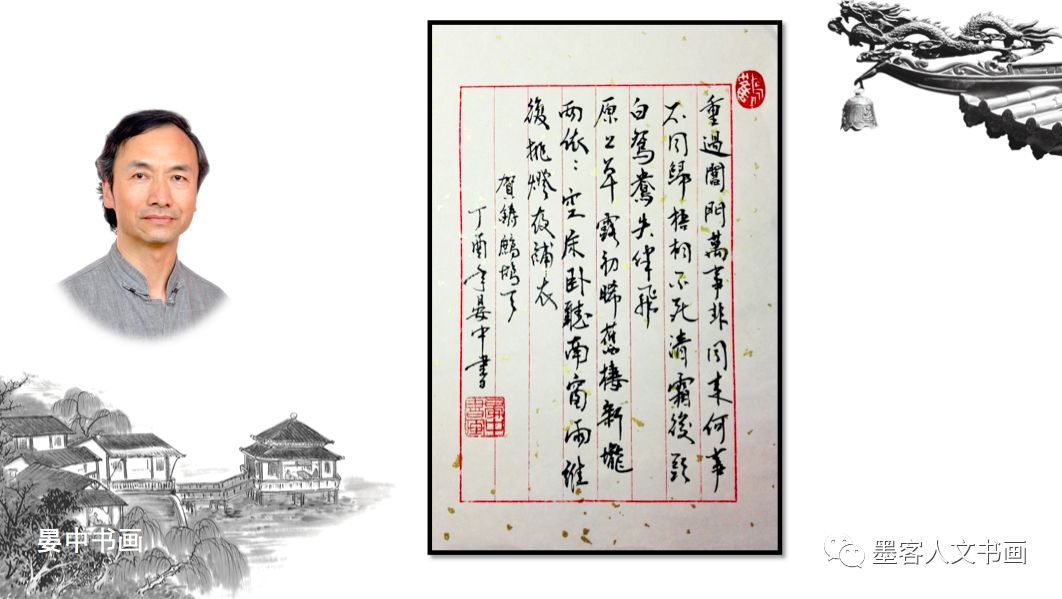 重過閶門萬事非同來何事
不同歸梧桐半死清霜後頭
白鴛鴦失伴飛
原上草露初晞舊棲新壠
兩依：空床臥聽南窗雨誰
復挑燈夜補衣
賀鑄鷓鴣天
丁酉年晏中書
晏中书画
墨客人文书画